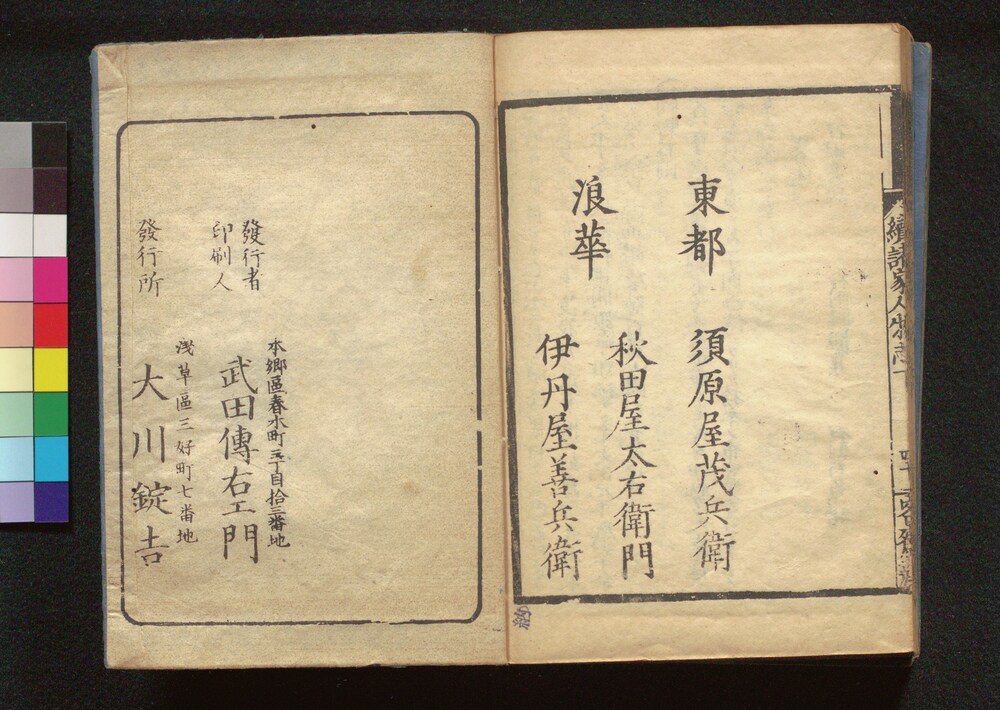 續諸家人物志下
東都
須原屋茂兵衛
浪華
秋田屋太右衛門
伊丹屋善兵衛
發行者
印刷人
本郷區春木町三丁目拾三番地
武田傳右エ門
發行所
淺草區三好町七番地
大川錠吉